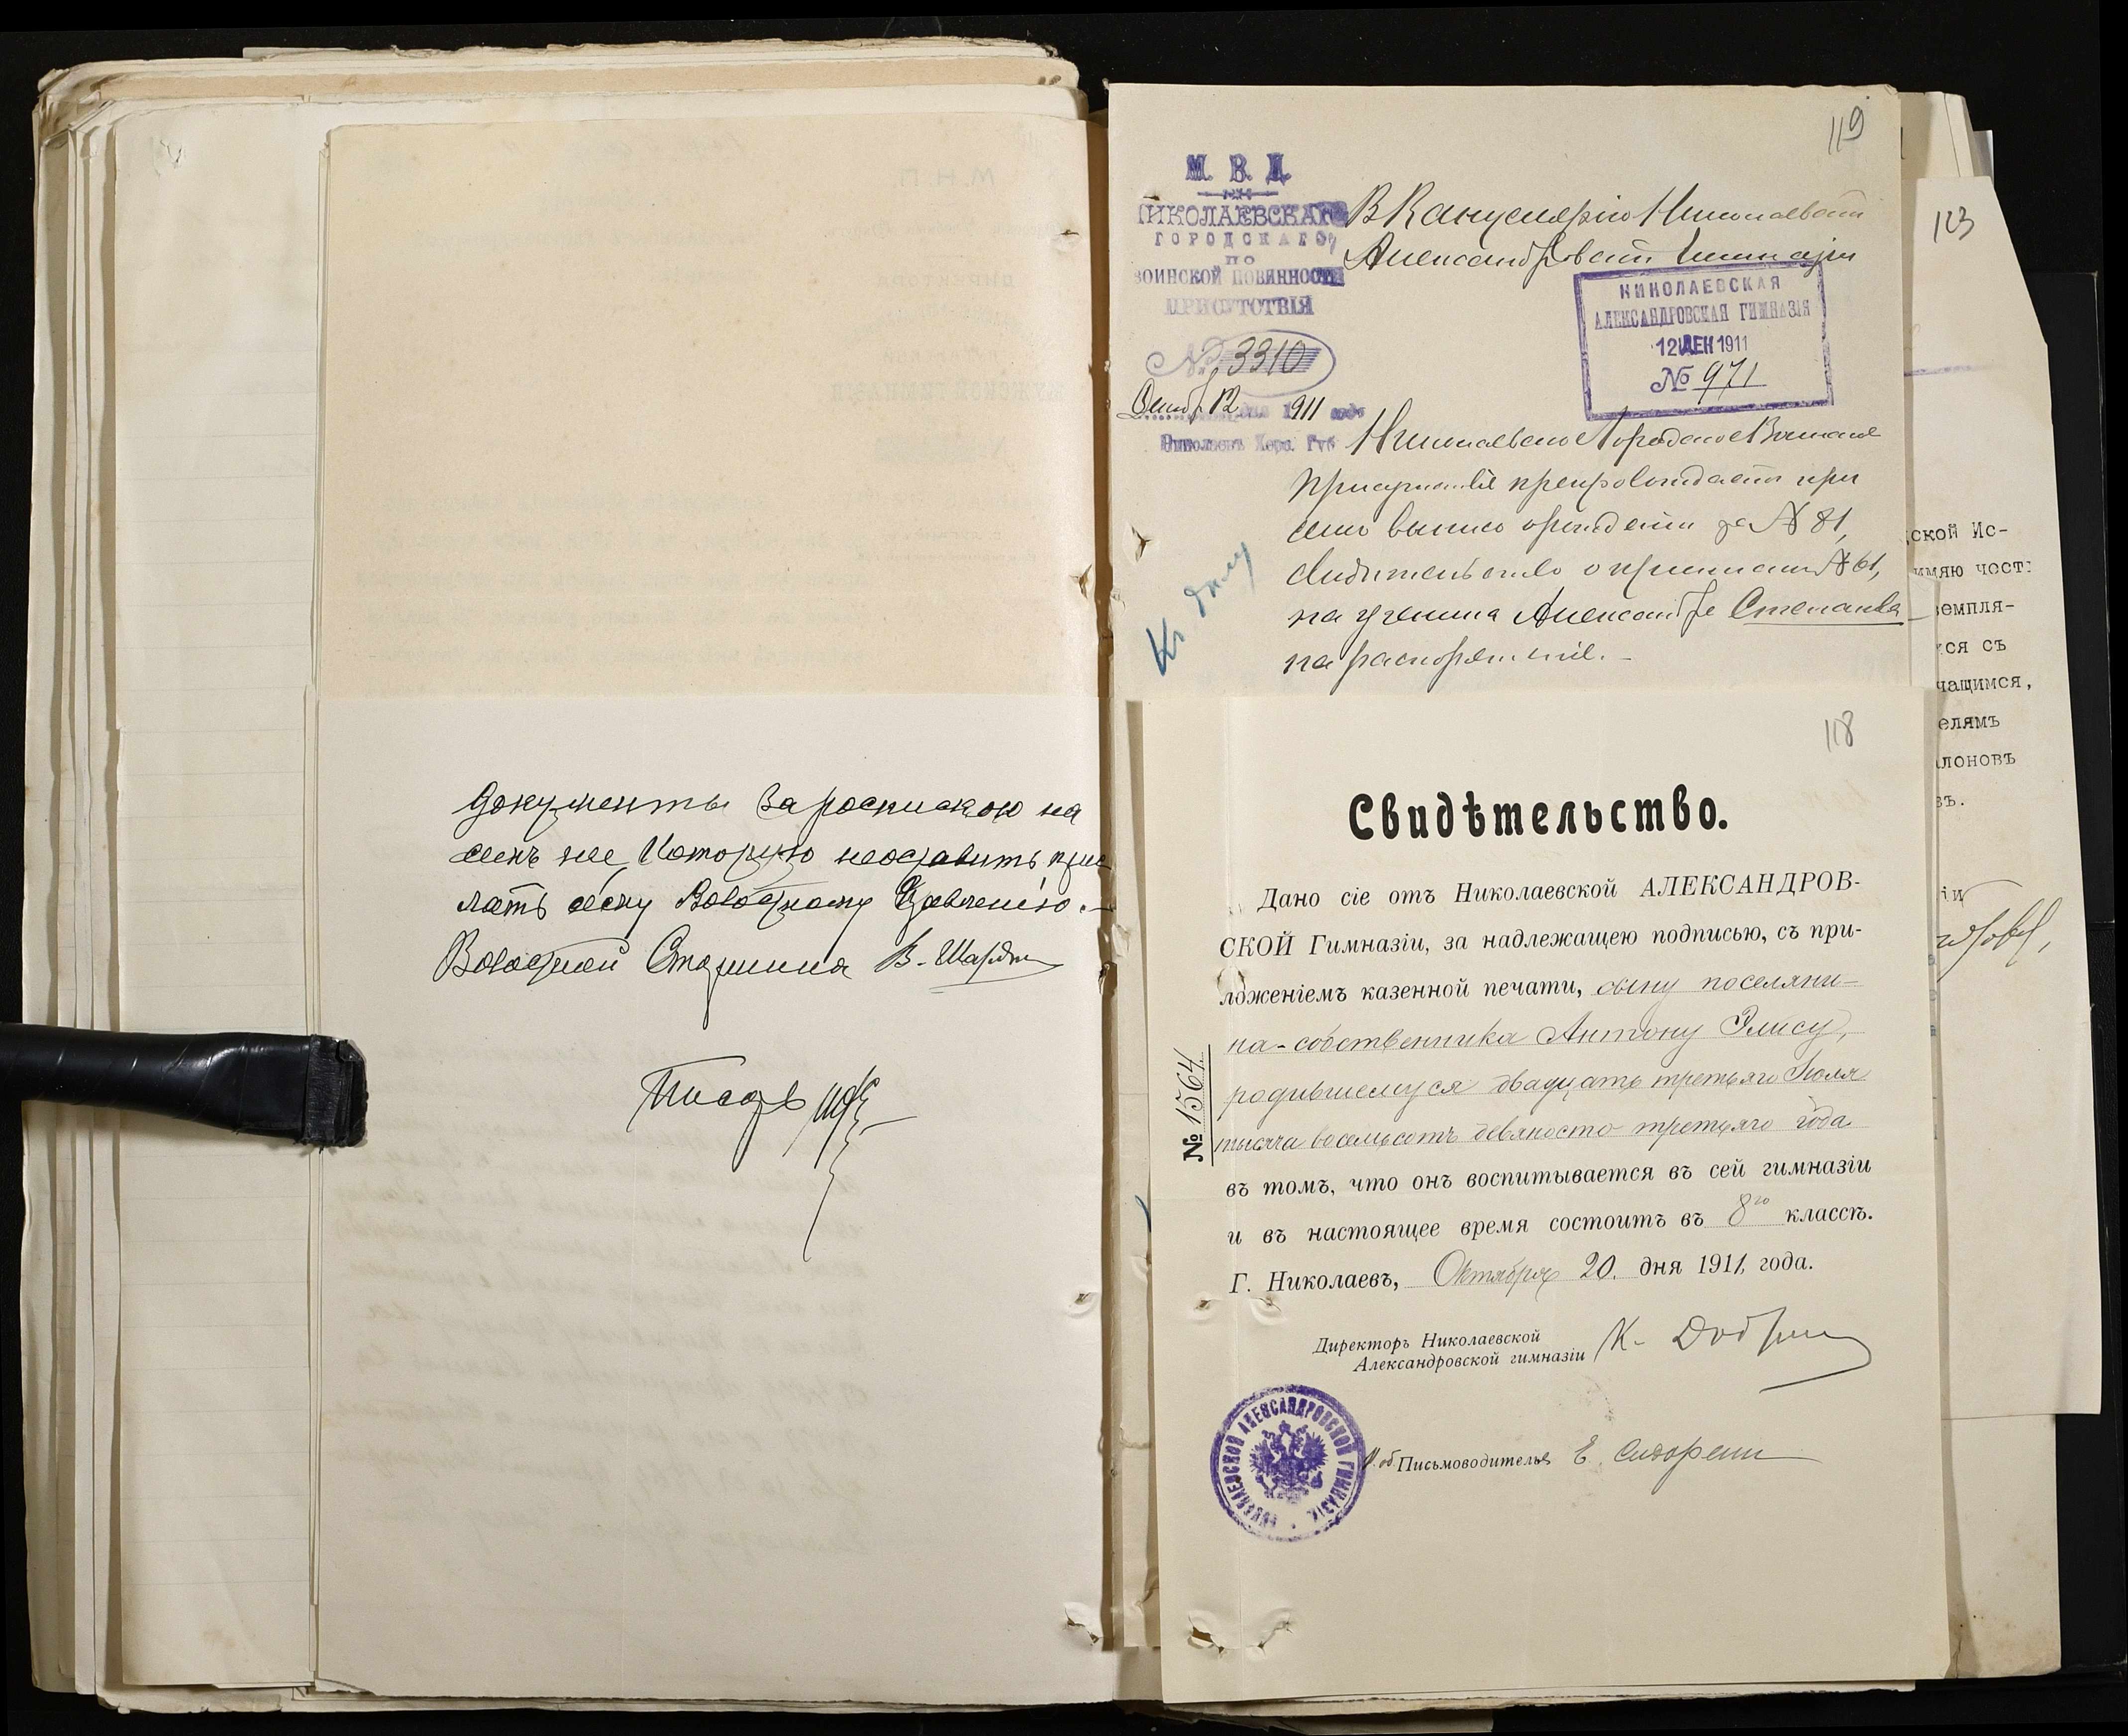 документы за роспискою на
семъ же, которую неоставить прис
лать сему Волостному Правленію.—
Волостной Старшина В. Шардт
Писарь
119
М. В. Д.
НИКОЛАЕВСКАГО
ГОРОДСКАГО
ПО
ВОИНСКОЙ ПОВИННОСТИ
ПРИСУТСТВІЯ
№ 3310
Декабр 12 дня 1911 года
Николаевъ Херс. Губ
В Канцелярію Николаевской
Александровской Гимназіи
НИКОЛАЕВСКАЯ
АЛЕКСАНДРОВСКАЯ ГИМНАЗІЯ
12 ДЕК 1911
№ 971
Николаевское Городское Воинское
Присутствіе препровождаетъ при
семъ за № 81,
свидетельство о приписке № 61,
на ученика Александра Степанова
на распоряженіе.—
Къ делу
118
Свидѣтельство.
Дано сіе отъ Николаевской АЛЕКСАНДРОВ-
СКОЙ Гимназіи, за надлежащею подписью, съ при-
ложеніемъ казенной печати, сыну поселяни-
на-собственника Антону Элису,
родившемуся двадцать третьяго Іюля
тысяча восемьсотъ девяносто третьяго года
въ томъ, что онъ воспитывается въ сей гимназіи
и въ настоящее время состоитъ въ 8го классѣ.
Г. Николаевъ, Октября 20. дня 1911 года.
№ 1564.
Директоръ Николаевской
Александровской гимназіи К. Добр
И. об. Письмоводителя Е. Сидорен
НИКОЛАЕВСКОЙ АЛЕКСАНДРОВСКОЙ ГИМНАЗІИ
123
ской Ис-
имяю чест
земпля-
ся съ
чащимся,
елямъ
лоновъ
въ.
іи